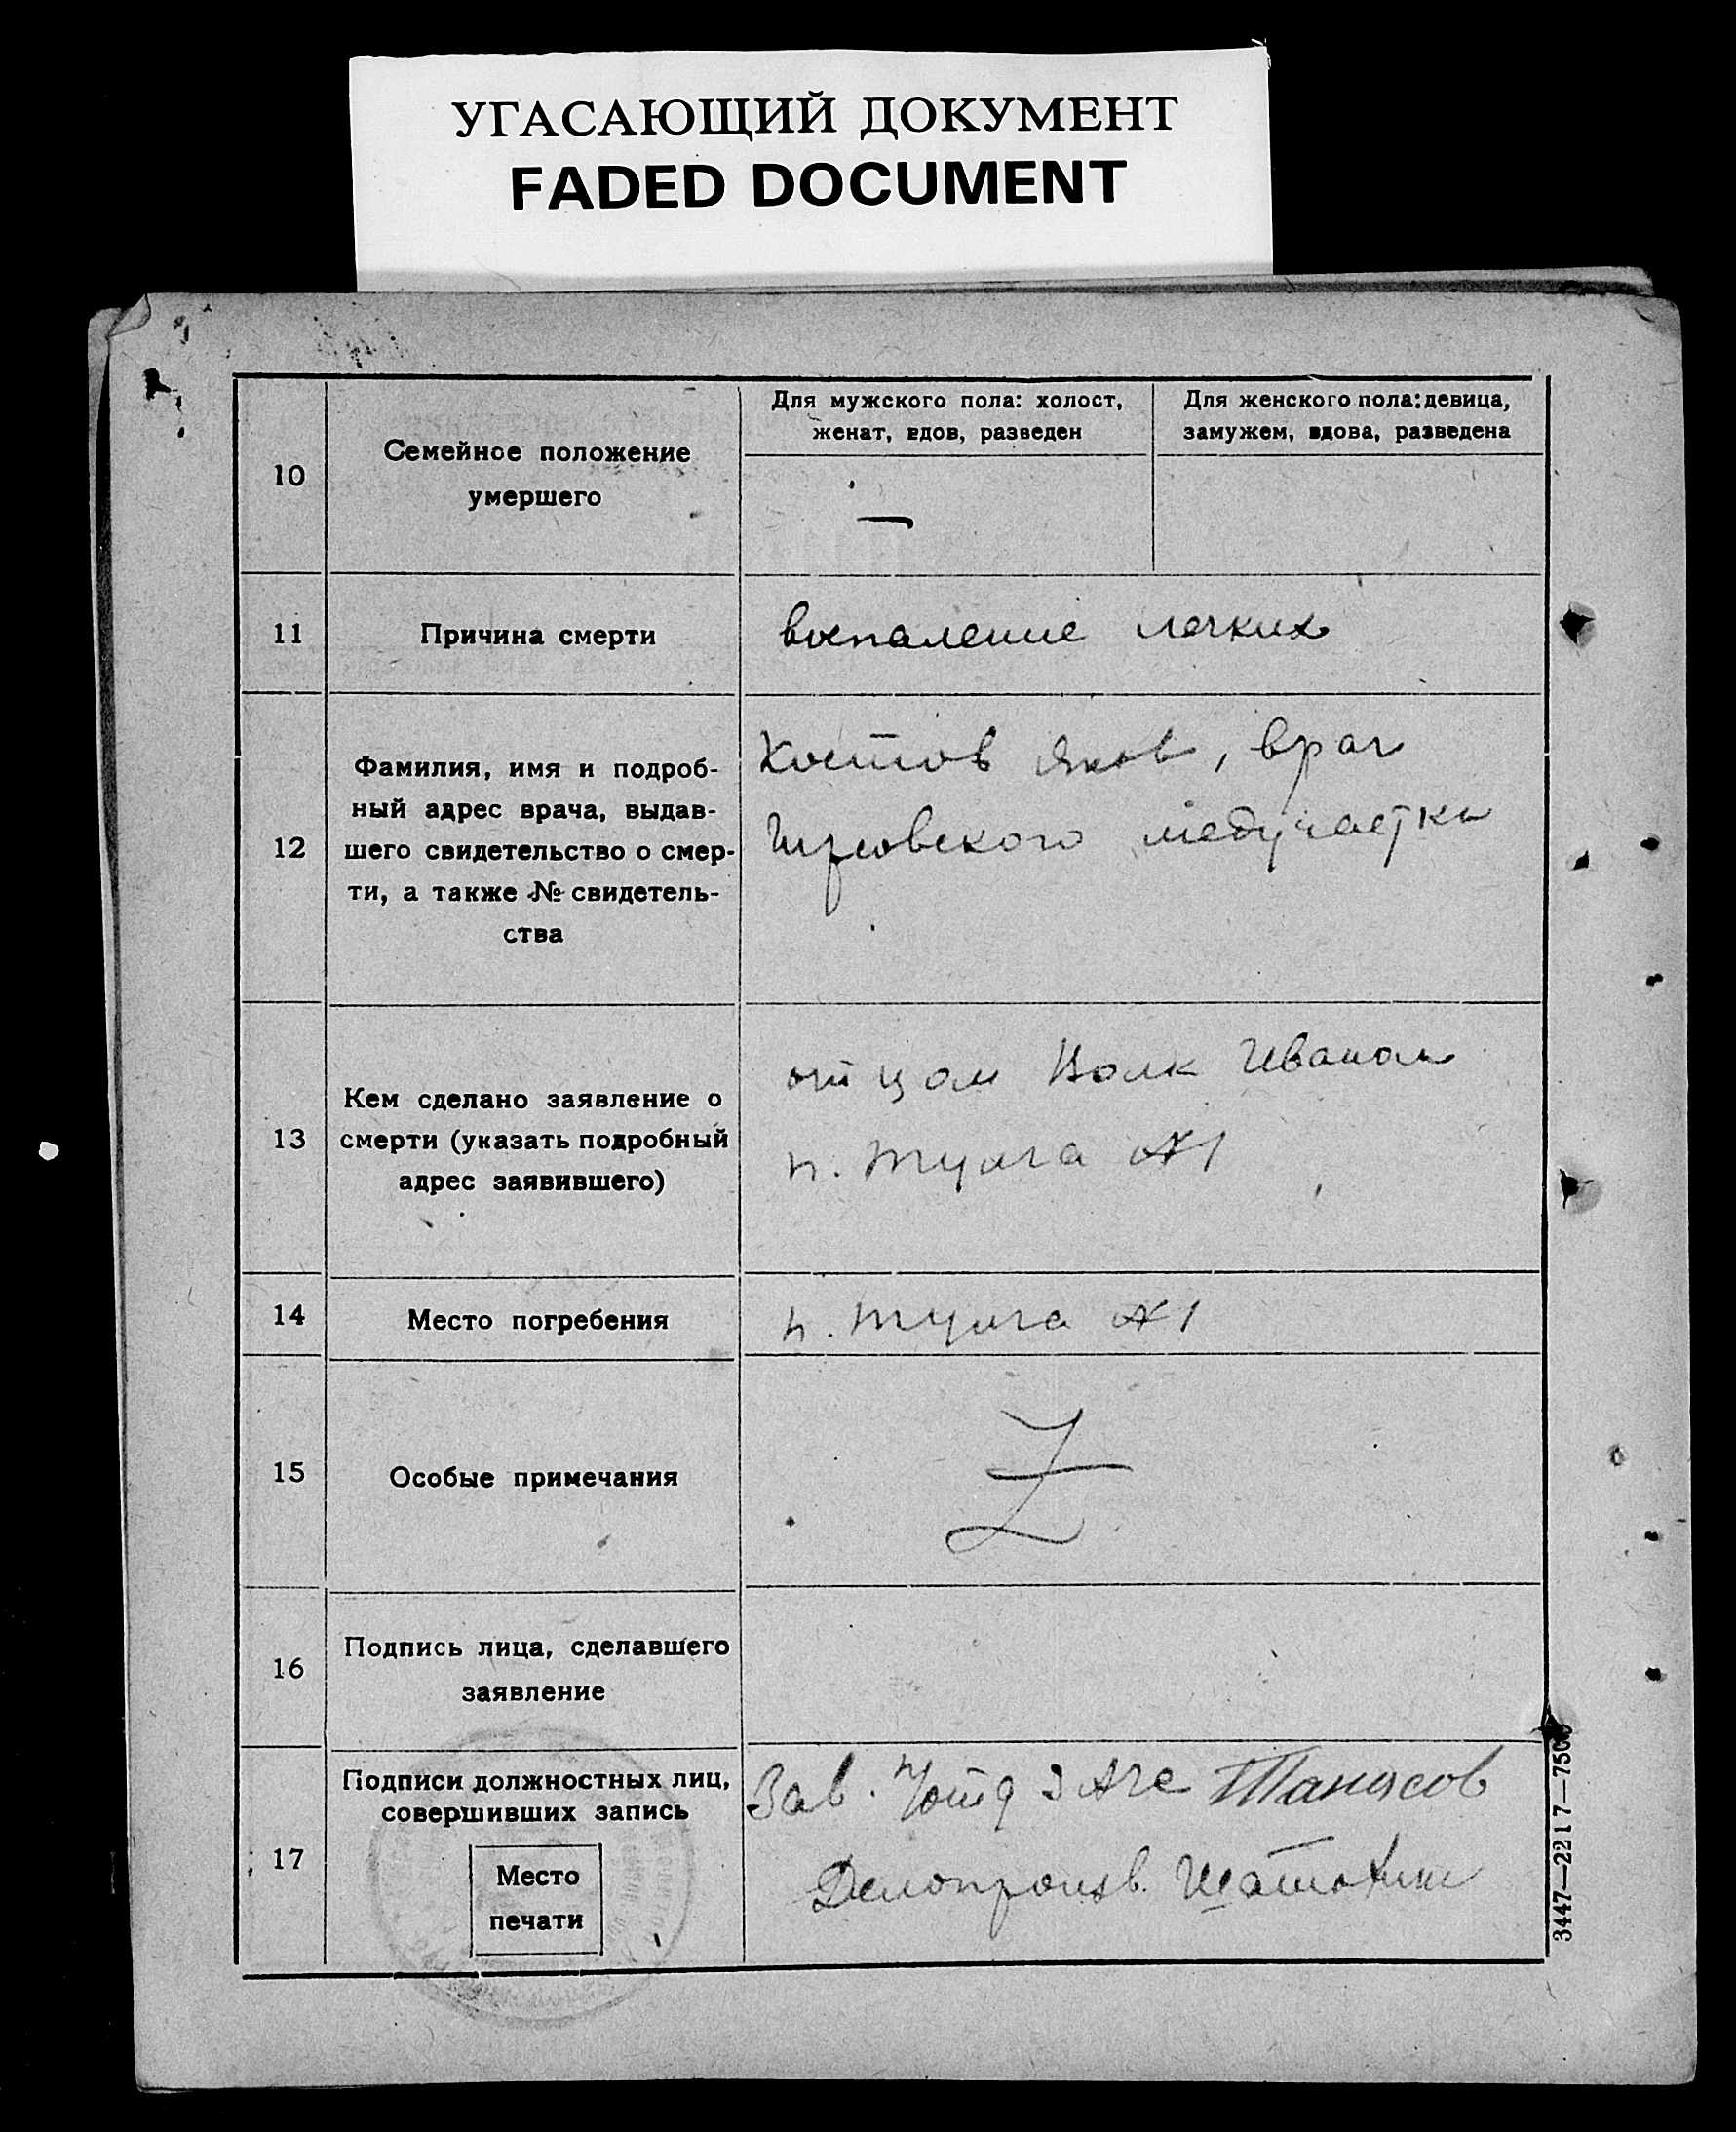 УГАСАЮЩИЙ ДОКУМЕНТ
FADED DOCUMENT
10
Семейное положение
умершего
Для мужского пола: холост,
женат, вдов, разведен
Для женского пола: девица,
замужем, вдова, разведена
—
11
Причина смерти
воспаление легких
12
Фамилия, имя и подроб-
ный адрес врача, выдав-
шего свидетельство о смер-
ти, а также № свидетель-
ства
Костов Яков, врач
медучастка
13
Кем сделано заявление о
смерти (указать подробный
адрес заявившего)
отцом Волк Иваном
п. Тулга №1
14
Место погребения
п. Тулга №1
15
Особые примечания
Z
16
Подпись лица, сделавшего
заявление
17
Подписи должностных лиц,
совершивших запись
Место
печати
Зав. ЗАГС Танасов
Делопроизв.
3447—2217—7500